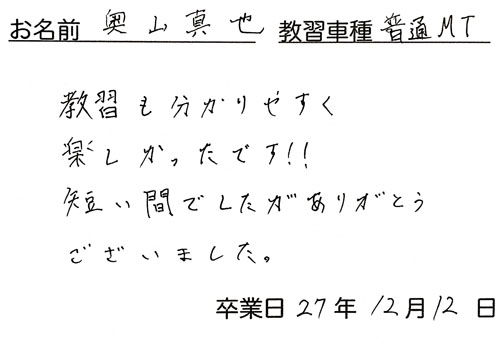 お名前 奥山真也 教習車種 普通MT
教習も分かりやすく
楽しかったです!!
短い間でしたがありがとう
ございました。
卒業日 27年 12月 12日